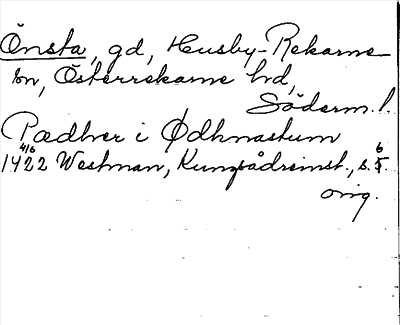 Önsta, gd, Husby-Rekarne
sn, Österrekarne hd,
Söderm. l.
Pædher i Ødhnastum
4/6 1422 Westman, Kungsådreinst., s. 6.
orig.